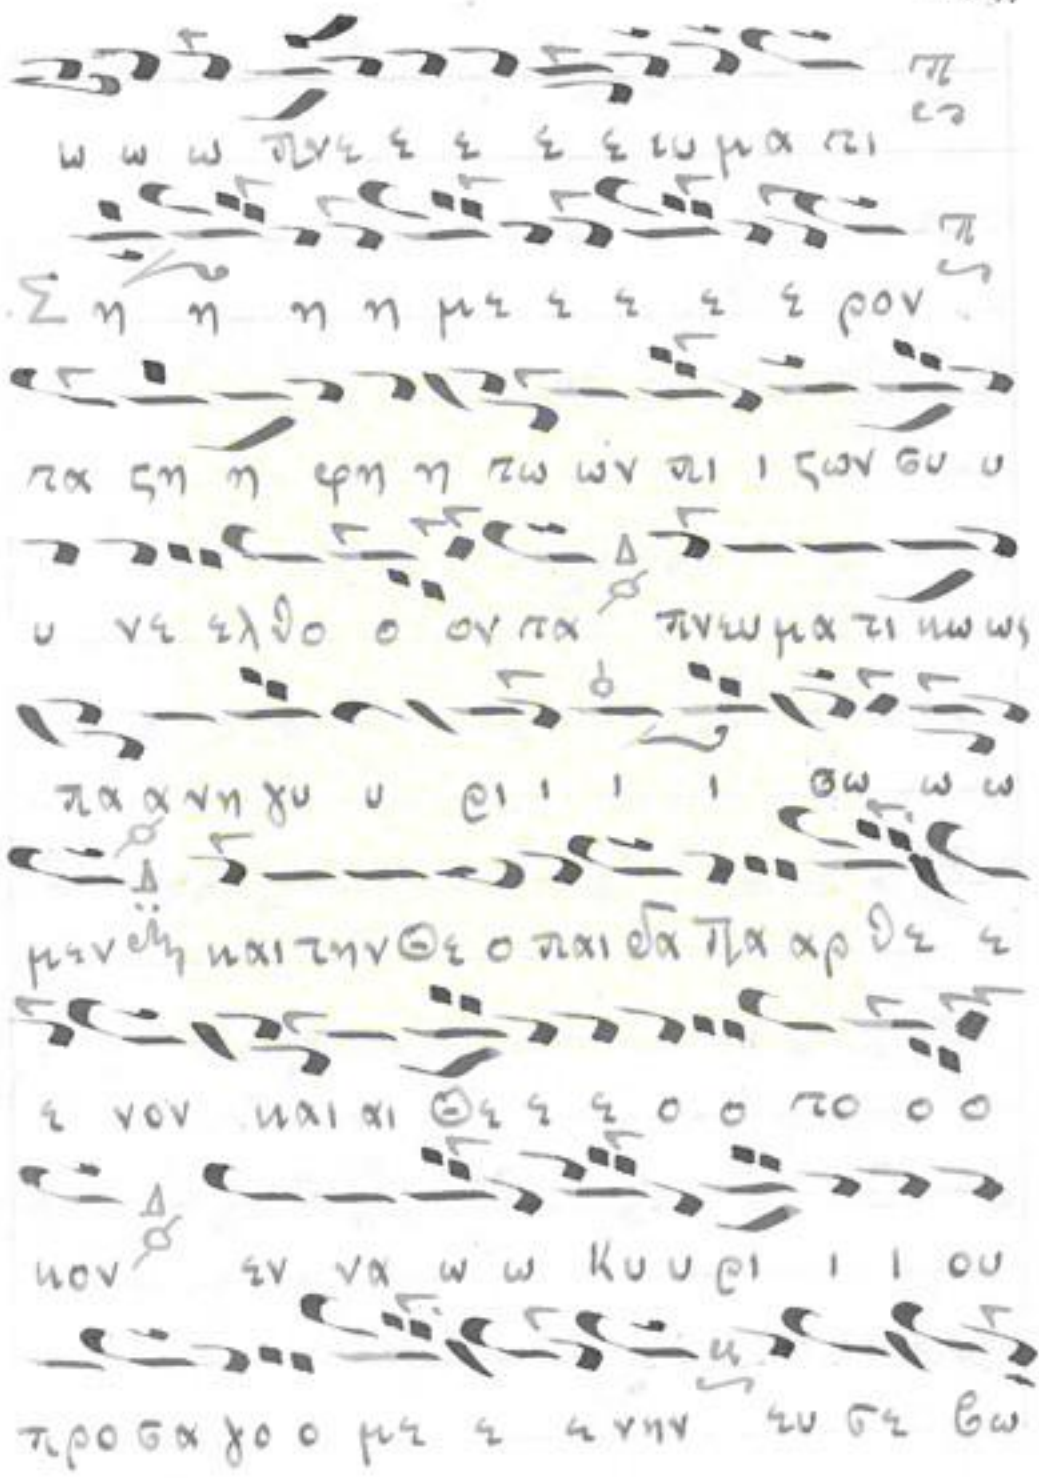 ω ω ω πνε ε ε ε ε ευ μα τι
Ση η η η με ε ε ε ε ρον
τα ζη η φη η τω ων πι ι ζων συ υ
υ νε ελθο ο ον τα πνευ μα τι κω ως
πα α νη γυ υ ρι ι ι ι σω ω ω
μεν και την Θε ο παι δα Πα αρ θε ε
ε νον και αι Θε ε ε ο ο το ο ο
κον εν να ω ω Κυ υ ρι ι ι ου
προ σα γο ο με ε ε νην ευ σε βω